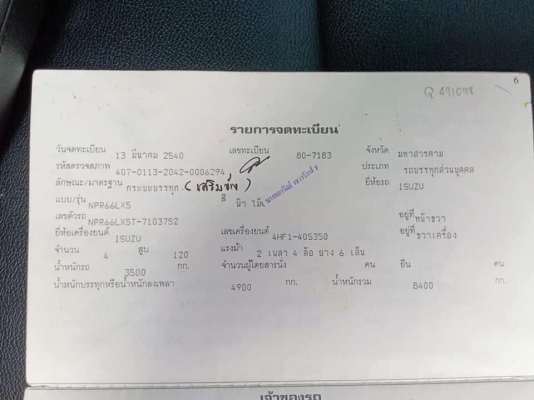 6
Q 491098
รายการจดทะเบียน
วันจดทะเบียน 13 มีนาคม 2540 เลขทะเบียน 80-7183 จังหวัด มหาสารคาม
รหัสตรวจสภาพ 407-0113-2042-0006294 ประเภท รถบรรทุกส่วนบุคคล
ลักษณะ/มาตรฐาน กระบะบรรทุก (เสริมซี่) สี ฟ้า ยี่ห้อรถ ISUZU
แบบ/รุ่น NPR66LX5
เลขตัวรถ NPR66LX5T-7103752 อยู่ที่ หน้าขวา
ยี่ห้อเครื่องยนต์ ISUZU เลขเครื่องยนต์ 4HF1-405350 อยู่ที่ ขวาเครื่อง
จำนวน 4 สูบ 120 แรงม้า 2 เพลา 4 ล้อ ยาง 6 เส้น
น้ำหนักรถ 3500 กก. จำนวนผู้โดยสารนั่ง คน ยืน คน
น้ำหนักบรรทุกหรือน้ำหนักลงเพลา 4900 กก. น้ำหนักรวม 8400 กก.
เจ้าของรถ